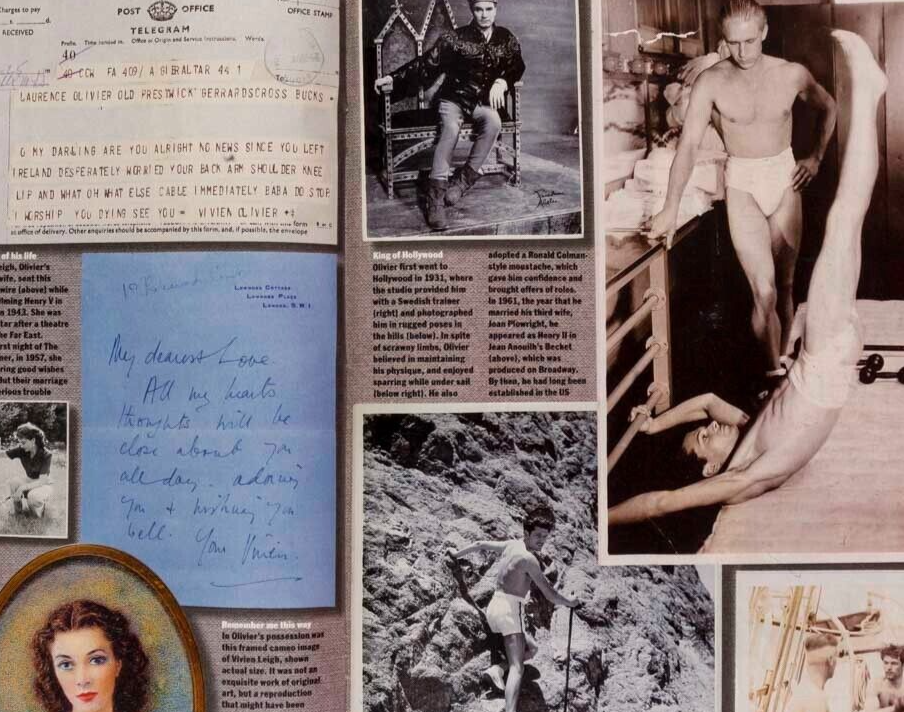 Charges to pay
s. d.
RECEIVED
POST OFFICE
TELEGRAM
OFFICE STAMP
Prefix. Time handed in. Office of Origin and Service Instructions. Words.
40
40 CCW FA 409/ A GIBRALTAR 44 1
LAURENCE OLIVIER OLD PRESTWICK GERRARDSCROSS BUCKS
O MY DARLING ARE YOU ALRIGHT NO NEWS SINCE YOU LEFT
IRELAND DESPERATELY WORRIED YOUR BACK ARM SHOULDER KNEE
LIP AND WHAT OH WHAT ELSE CABLE IMMEDIATELY BABA DO STOP
I WORSHIP YOU DYING SEE YOU = VIVIEN OLIVIER +
form
at office of delivery. Other enquiries should be accompanied by this form, and, if possible, the envelope
of his life
eigh, Olivier's
wife, sent this
wire (above) while
lming Henry V in
n 1943. She was
tar after a theatre
he Far East.
rst night of The
ner, in 1957, she
ring good wishes
But their marriage
erious trouble
LOWNDES COTTAGE
LOWNDES PLACE
LONDON, S.W.1
My dearest Love
All my hearts
thoughts will be
close about you
all day. adoring
you & wishing you
well. Your Vivien.
Remember me this way
In Olivier's possession was
this framed cameo image
of Vivien Leigh, shown
actual size. It was not an
exquisite work of original
art, but a reproduction
that might have been
King of Hollywood
Olivier first went to
Hollywood in 1931, where
the studio provided him
with a Swedish trainer
(right) and photographed
him in rugged poses in
the hills (below). In spite
of scrawny limbs, Olivier
believed in maintaining
his physique, and enjoyed
sparring while under sail
(below right). He also
adopted a Ronald Colman-
style moustache, which
gave him confidence and
brought offers of roles.
In 1961, the year that he
married his third wife,
Joan Plowright, he
appeared as Henry II in
Jean Anouilh's Becket
(above), which was
produced on Broadway.
By then, he had long been
established in the US